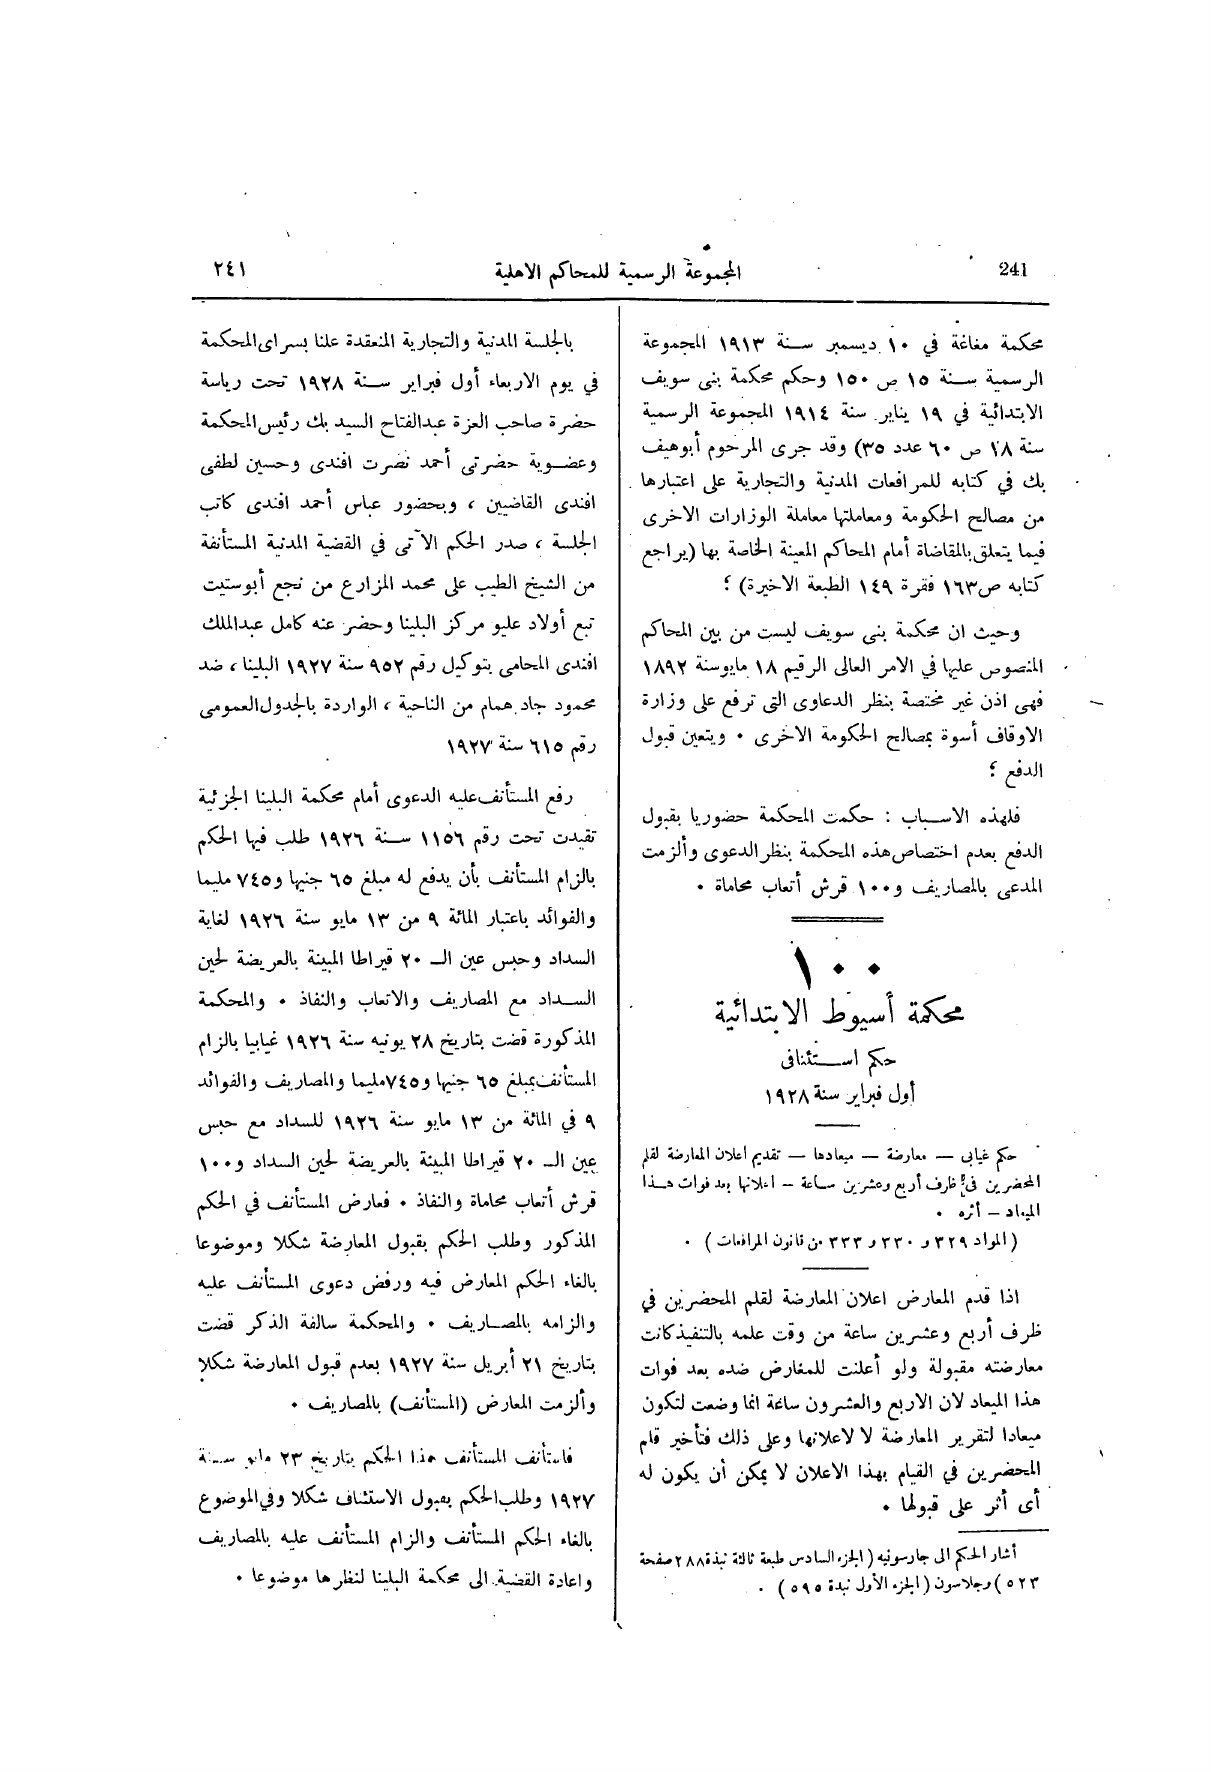 241 المجموعة الرسمية للمحاكم الاهلية ٢٤١
محكمة مغاغة في ١٠ ديسمبر سنة ١٩١٣ المجموعة
الرسمية سنة ١٥ ص ١٥٠ وحكم محكمة بنى سويف
الابتدائية في ١٩ يناير سنة ١٩١٤ المجموعة الرسمية
سنة ١٨ ص ٦٠ عدد ٣٥) وقد جرى المرحوم أبوهيف
بك في كتابه للمرافعات المدنية والتجارية على اعتبارها
من مصالح الحكومة ومعاملتها معاملة الوزارات الاخرى
فيما يتعلق بالمقاضاة أمام المحاكم المعينة الخاصة بها (يراجع
كتابه ص١٦٣ فقرة ١٤٩ الطبعة الاخيرة) ؛
وحيث ان محكمة بنى سويف ليست من بين المحاكم
المنصوص عليها في الامر العالى الرقيم ١٨ مايوسنة ١٨٩٢
فهى اذن غير مختصة بنظر الدعاوى التى ترفع على وزارة
الاوقاف أسوة بمصالح الحكومة الاخرى . ويتعين قبول
الدفع ؛
فلهذه الاسباب : حكمت المحكمة حضوريا بقبول
الدفع بعدم اختصاص هذه المحكمة بنظر الدعوى وألزمت
المدعى بالمصاريف و١٠٠ قرش أتعاب محاماة .
١٠٠
محكمة أسيوط الابتدائية
حكم استئنافى
أول فبراير سنة ١٩٢٨
حكم غيابى — معارضة — ميعادها — تقديم اعلان المعارضة لقلم
المحضرين في ظرف أربع وعشرين ساعة — اعلانها بعد فوات هذا
الميعاد — أثره .
(المواد ٣٢٩ و ٣٣٠ و ٣٣٣ من قانون المرافعات) .
اذا قدم المعارض اعلان المعارضة لقلم المحضرين في
ظرف أربع وعشرين ساعة من وقت علمه بالتنفيذ كانت
معارضته مقبولة ولو أعلنت للمعارض ضده بعد فوات
هذا الميعاد لان الاربع والعشرون ساعة انما وضعت لتكون
ميعادا لتقرير المعارضة لا لاعلانها وعلى ذلك فتأخير قلم
المحضرين في القيام بهذا الاعلان لا يمكن أن يكون له
أى أثر على قبولها .
أشار الحكم الى جارسونيه (الجزء السادس طبعة ثالثة نبذة ٢٨٨ صفحة
٥٢٣) وجلاسون (الجزء الأول نبذة ٥٩٥) .
بالجلسة المدنية والتجارية المنعقدة علنا بسراى المحكمة
في يوم الاربعاء أول فبراير سنة ١٩٢٨ تحت رياسة
حضرة صاحب العزة عبدالفتاح السيد بك رئيس المحكمة
وعضوية حضرتى أحمد نصرت افندى وحسين لطفى
افندى القاضيين ، وبحضور عباس أحمد افندى كاتب
الجلسة ، صدر الحكم الآتى في القضية المدنية المستأنفة
من الشيخ الطيب على محمد المزارع من نجع أبوستيت
تبع أولاد عليو مركز البلينا وحضر عنه كامل عبدالملك
افندى المحامى بتوكيل رقم ٩٥٢ سنة ١٩٢٧ البلينا ، ضد
محمود جاد همام من الناحية ، الواردة بالجدول العمومى
رقم ٦١٥ سنة ١٩٢٧
رفع المستأنف عليه الدعوى أمام محكمة البلينا الجزئية
تقيدت تحت رقم ١١٥٦ سنة ١٩٢٦ طلب فيها الحكم
بالزام المستأنف بأن يدفع له مبلغ ٦٥ جنيها و٧٤٥ مليما
والفوائد باعتبار المائة ٩ من ١٣ مايو سنة ١٩٢٦ لغاية
السداد وحبس عين الـ ٢٠ قيراطا المبينة بالعريضة لحين
السداد مع المصاريف والاتعاب والنفاذ . والمحكمة
المذكورة قضت بتاريخ ٢٨ يونيه سنة ١٩٢٦ غيابيا بالزام
المستأنف بمبلغ ٦٥ جنيها و٧٤٥مليما والمصاريف والفوائد
٩ في المائة من ١٣ مايو سنة ١٩٢٦ للسداد مع حبس
عين الـ ٢٠ قيراطا المبينة بالعريضة لحين السداد و١٠٠
قرش أتعاب محاماة والنفاذ . فعارض المستأنف في الحكم
المذكور وطلب الحكم بقبول المعارضة شكلا وموضوعا
بالغاء الحكم المعارض فيه ورفض دعوى المستأنف عليه
والزامه بالمصاريف . والمحكمة سالفة الذكر قضت
بتاريخ ٢١ أبريل سنة ١٩٢٧ بعدم قبول المعارضة شكلا
وألزمت المعارض (المستأنف) بالمصاريف .
فاستأنف المستأنف هذا الحكم بتاريخ ٢٣ مايو سنة
١٩٢٧ وطلب الحكم بقبول الاستئناف شكلا وفي الموضوع
بالغاء الحكم المستأنف والزام المستأنف عليه بالمصاريف
واعادة القضية الى محكمة البلينا لنظرها موضوعا .